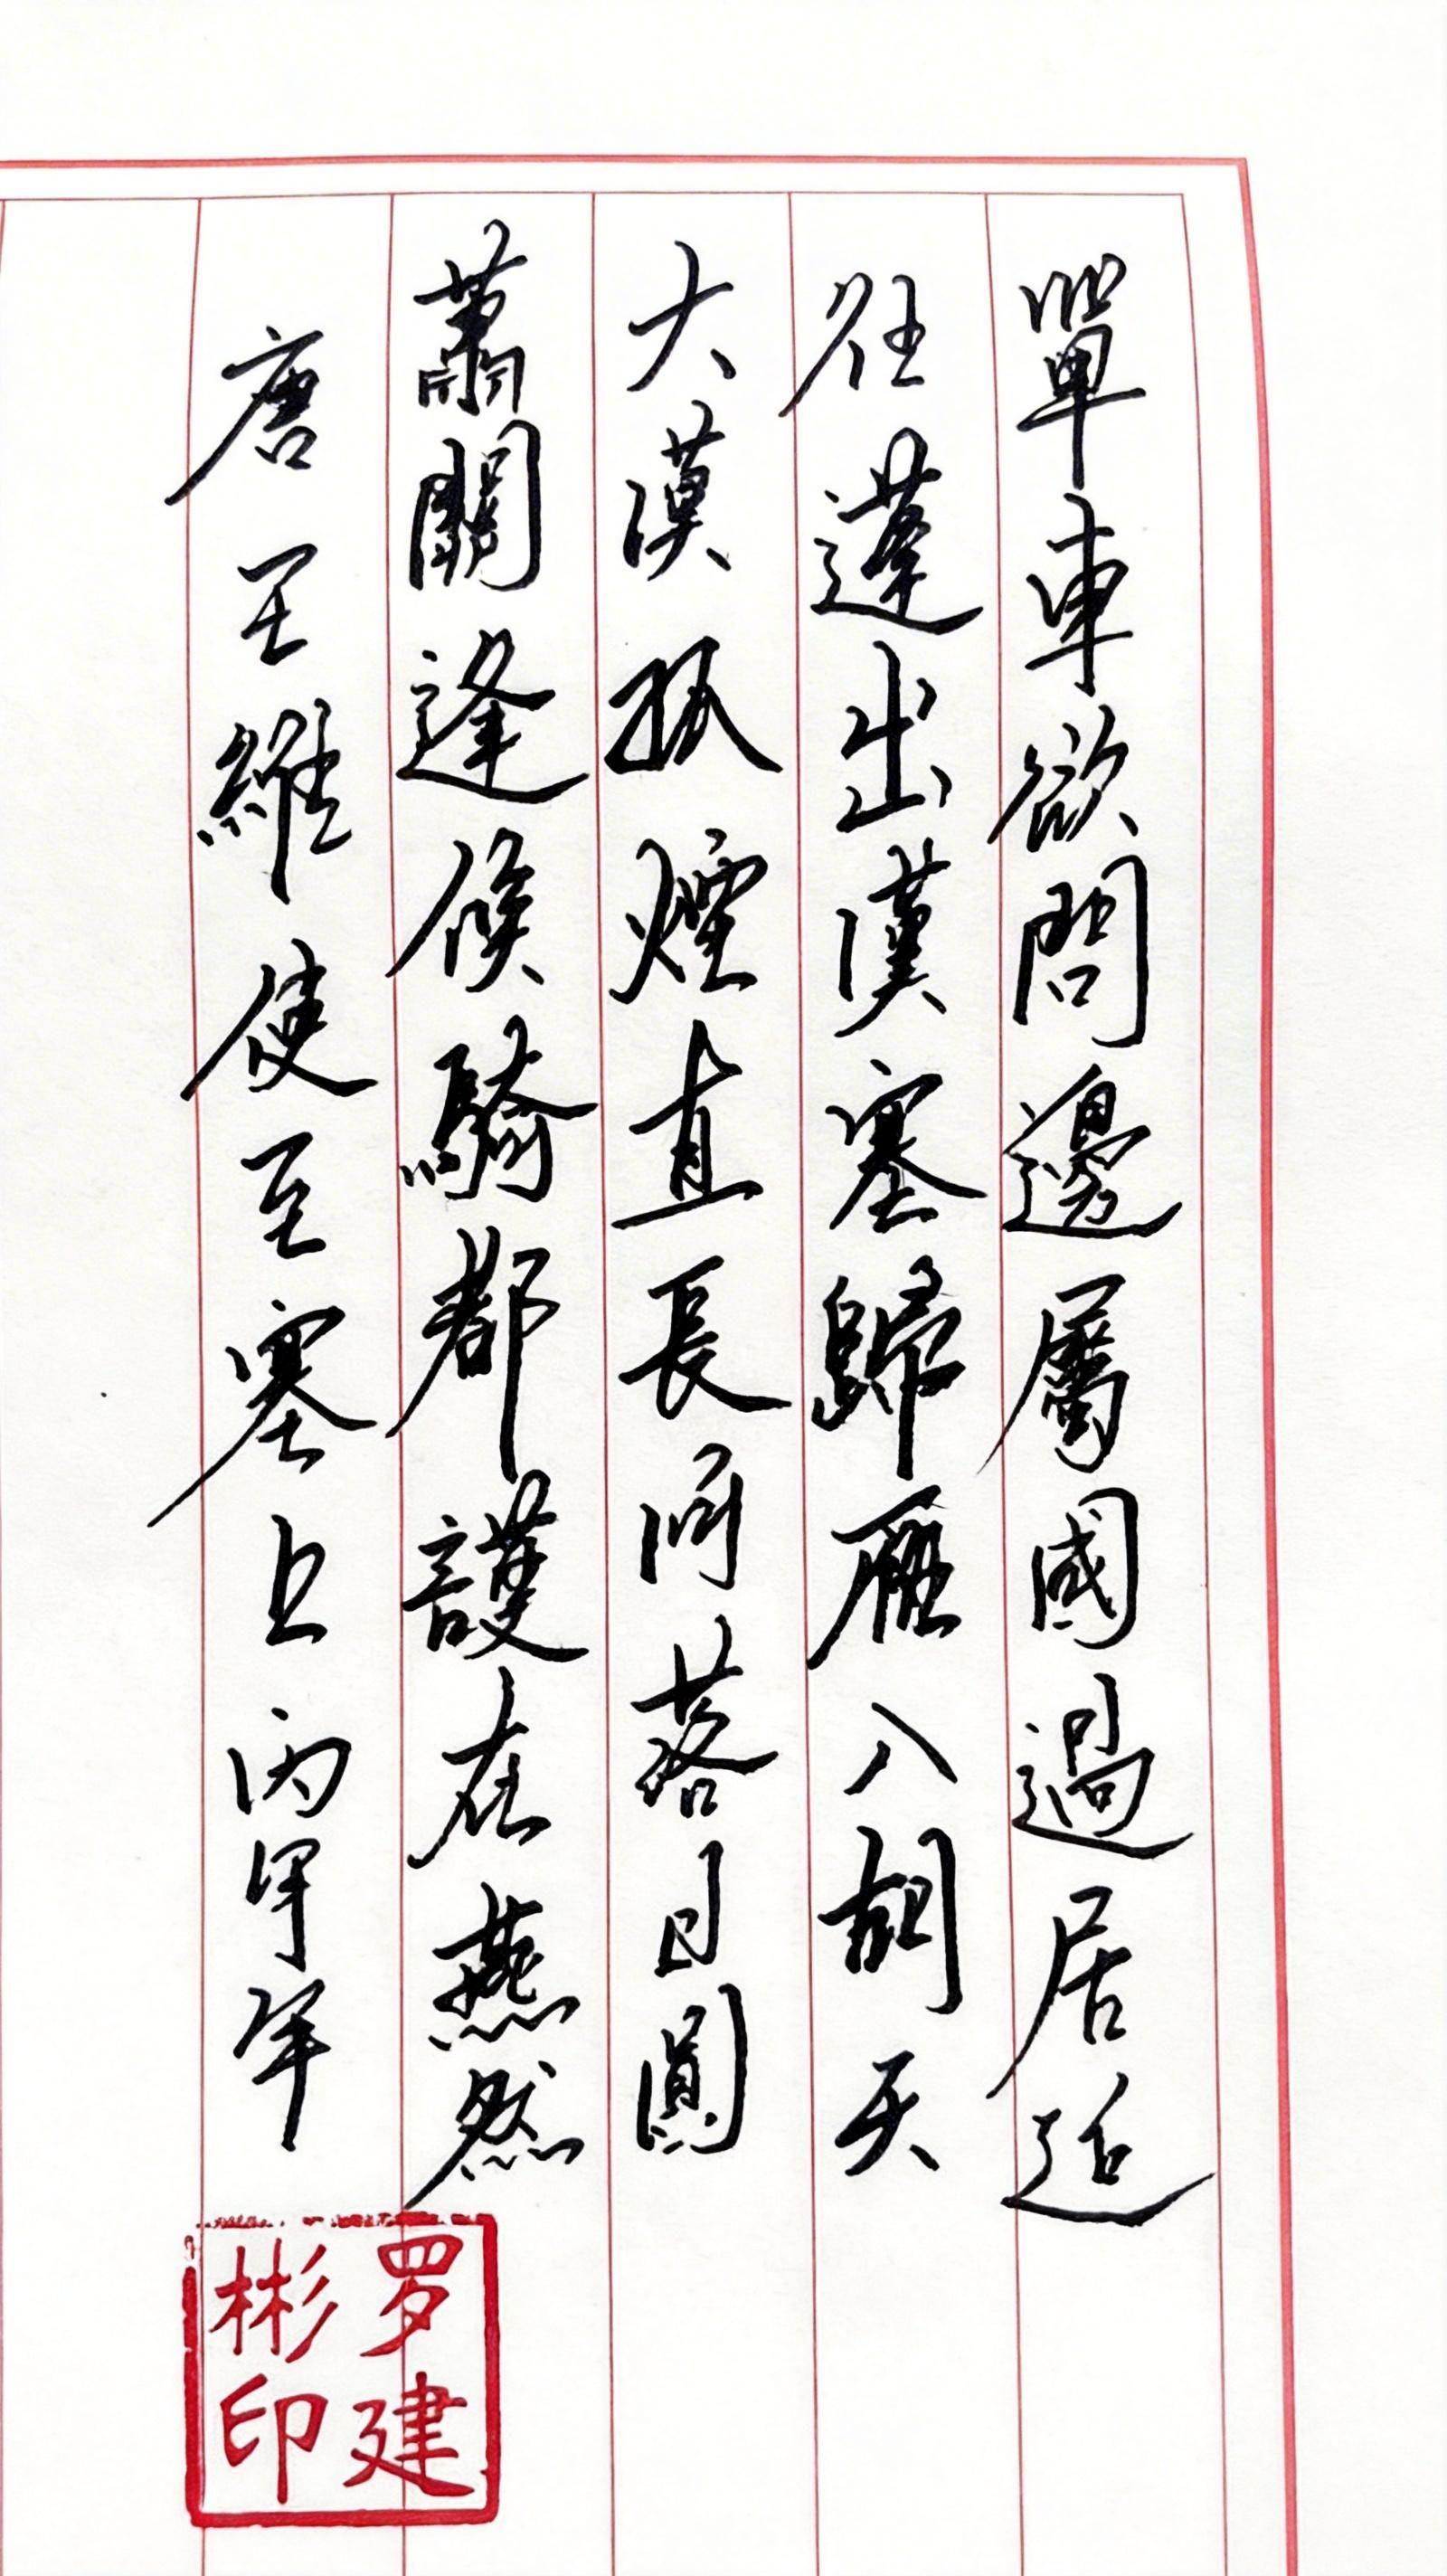 單車欲問邊屬國過居延
征蓬出漢塞歸雁入胡天
大漠孤煙直長河落日圓
蕭關逢候騎都護在燕然
唐王維使至塞上丙午年
罗建彬印